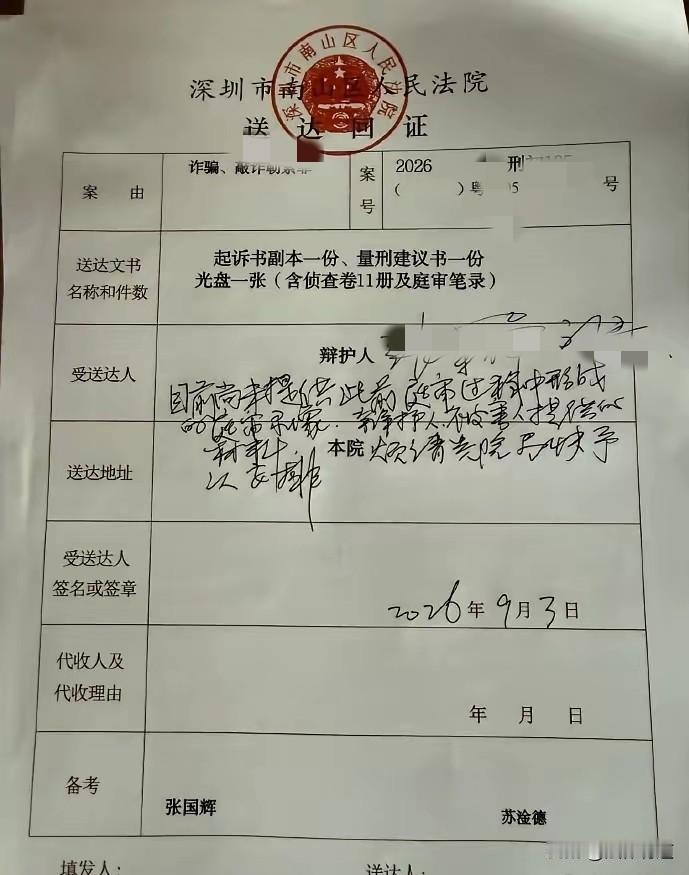 深圳市南山区人民法院
深圳市南山区人民法院
送达回证
案由
诈骗、敲诈勒索罪
案号
2026
刑
（ ）粤 05 号
送达文书
名称和件数
起诉书副本一份、量刑建议书一份
光盘一张（含侦查卷11册及庭审笔录）
受送达人
辩护人
目前尚未提供此前庭审过程中形成
的庭审录像、辩护人、被害人提供的
材料
本院 烦请贵院尽快予
以安排
送达地址
受送达人
签名或签章
2026年9月3日
代收人及
代收理由
年 月 日
备考
张国辉
苏淦德
填发人：
送达人：